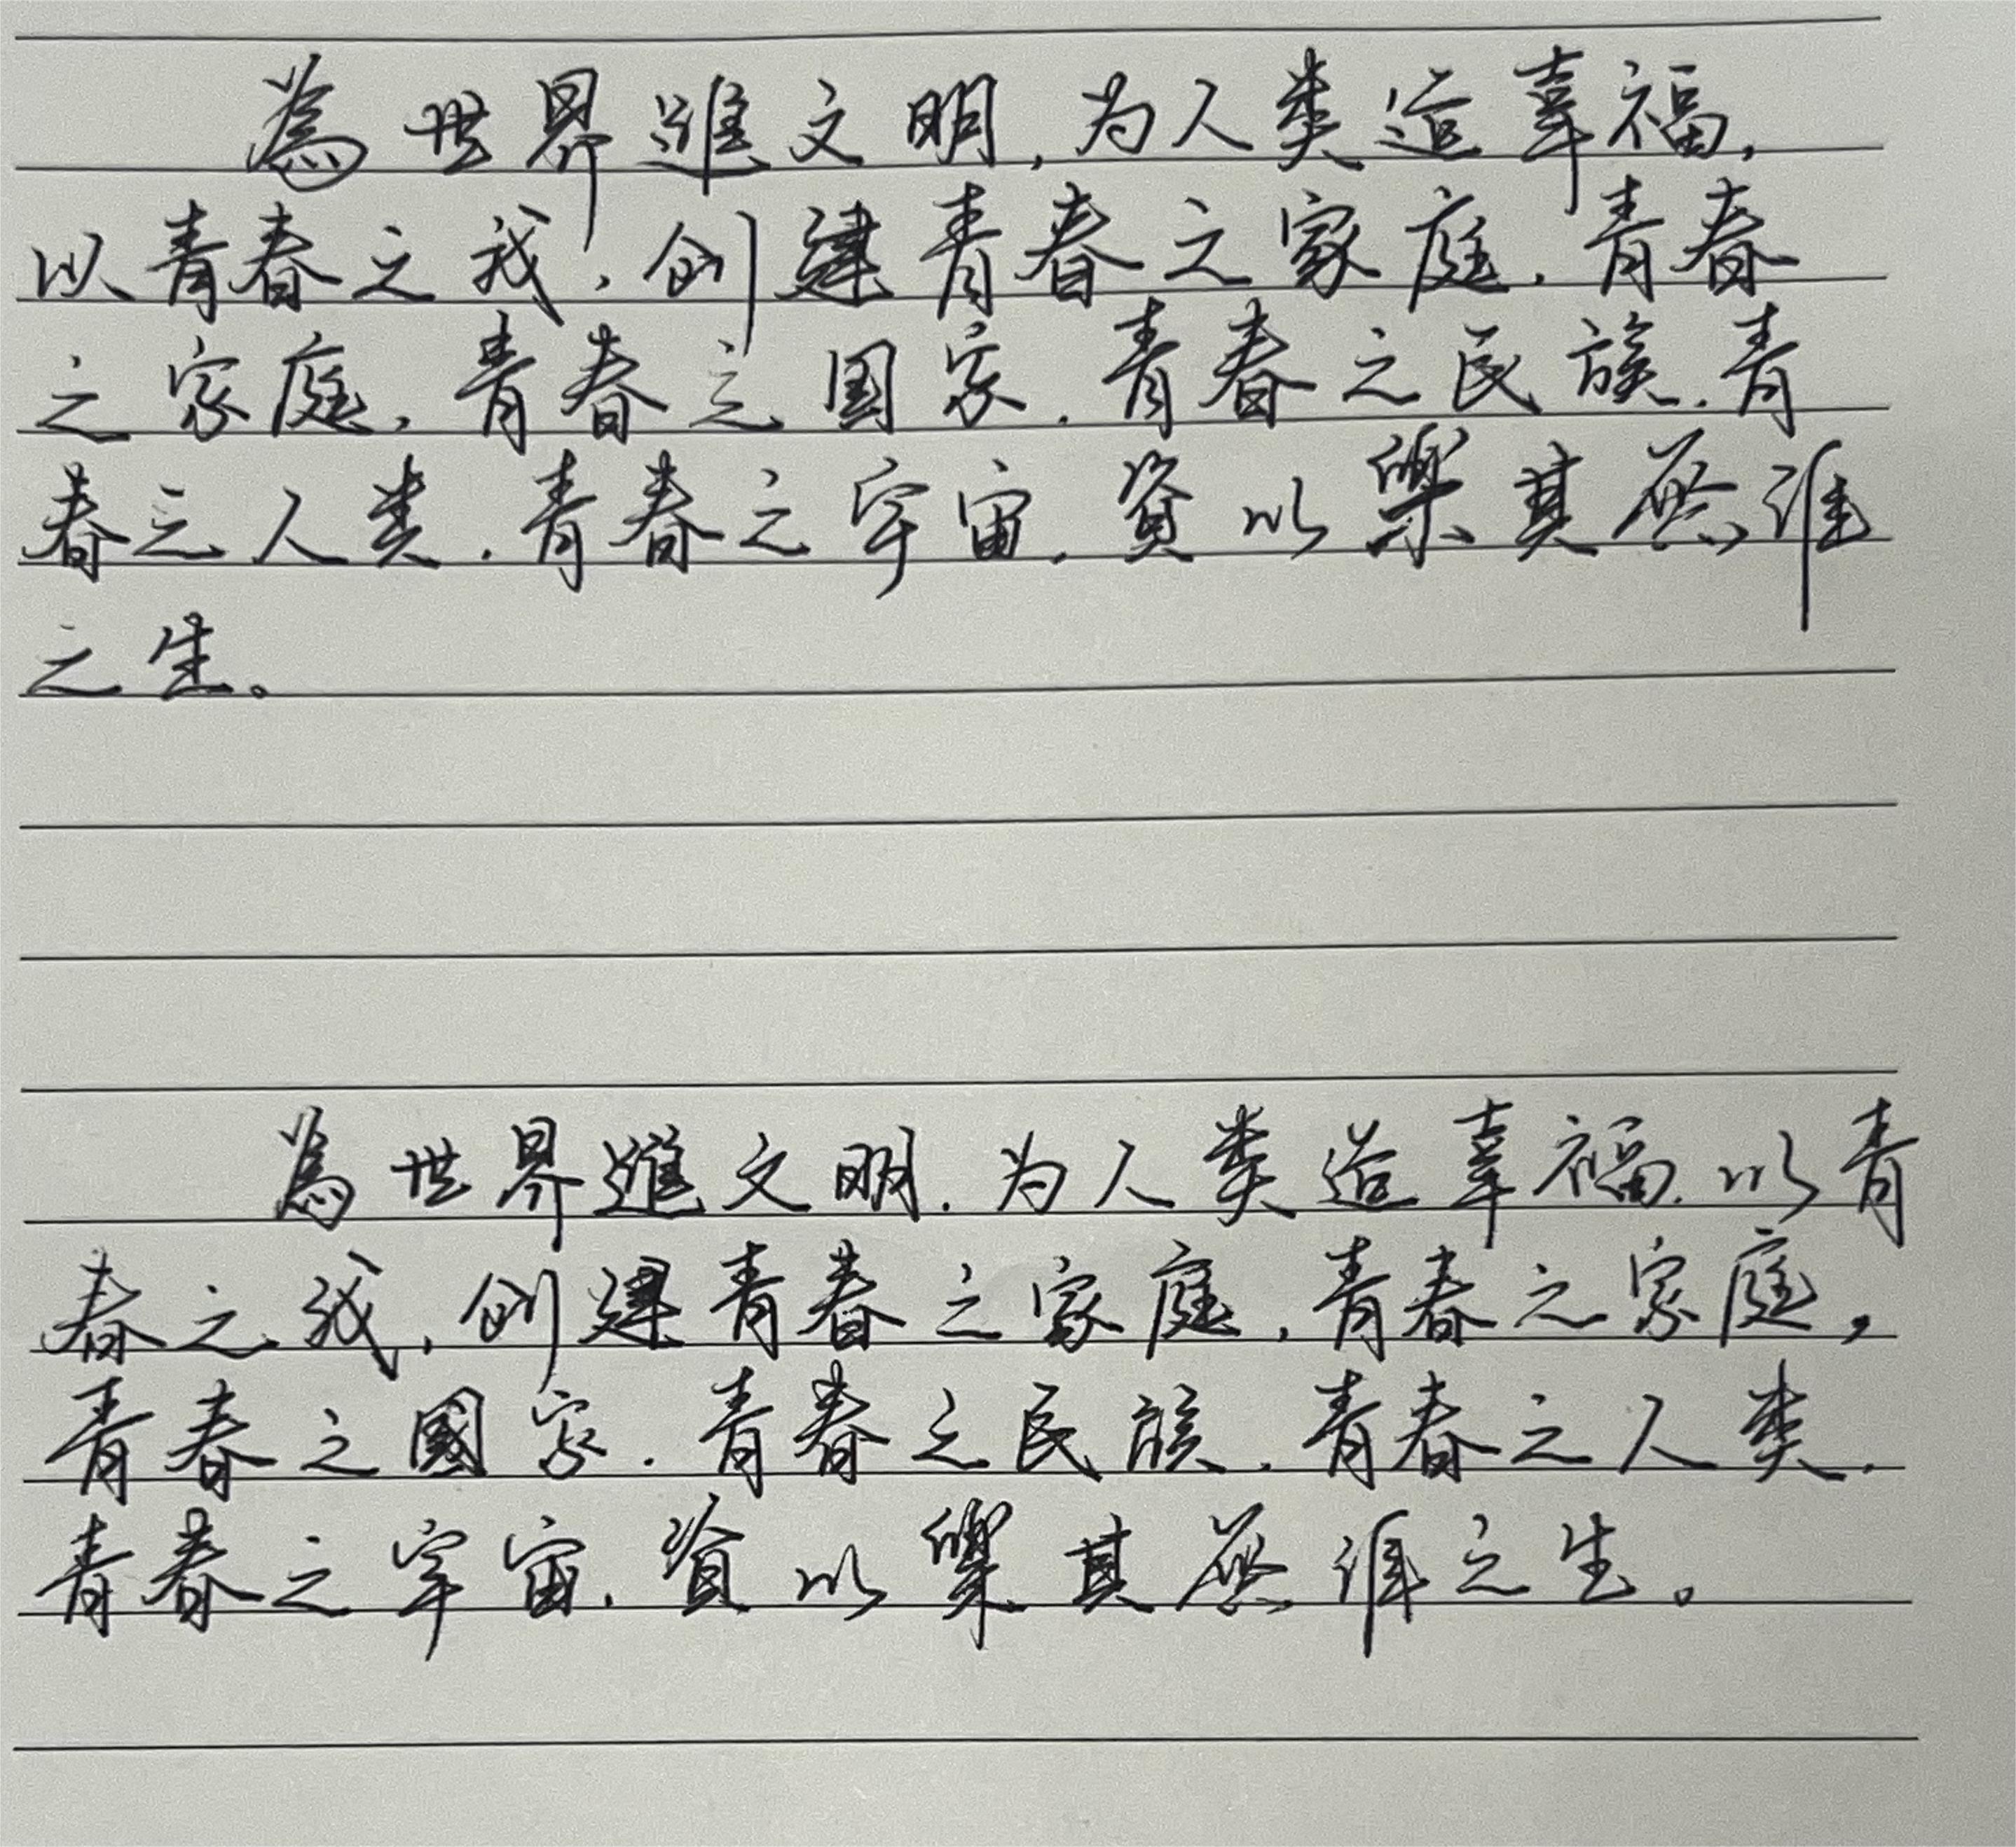 為世界進文明,为人类造幸福,
以青春之我,创建青春之家庭,青春
之家庭,青春之国家,青春之民族,青
春之人类,青春之宇宙,資以樂其無涯
之生。
為世界進文明,为人类造幸福,以青
春之我,创建青春之家庭,青春之家庭,
青春之國家,青春之民族,青春之人类,
青春之宇宙,資以樂其無涯之生。